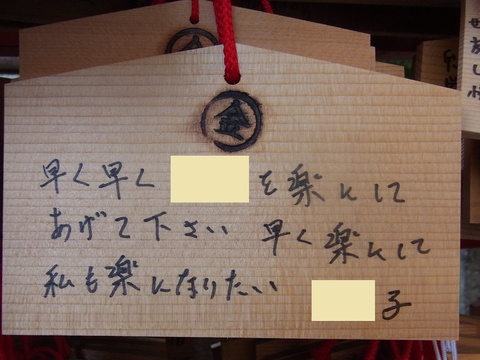 金
早く早く を楽にして
あげて下さい 早く楽にして
私も楽になりたい 子